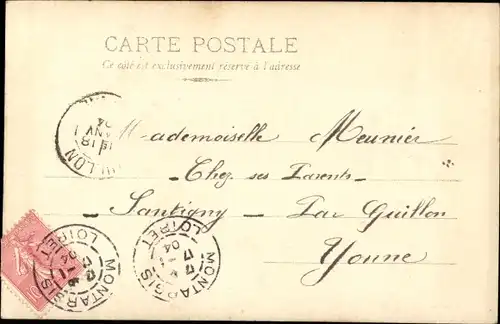 CARTE POSTALE
Ce côté est exclusivement réservé à l'adresse
Mademoiselle Meunier
Chez ses Parents
Santigny Par Guillon
Yonne
MONTARGIS
LOIRET
MONTARGIS
LOIRET